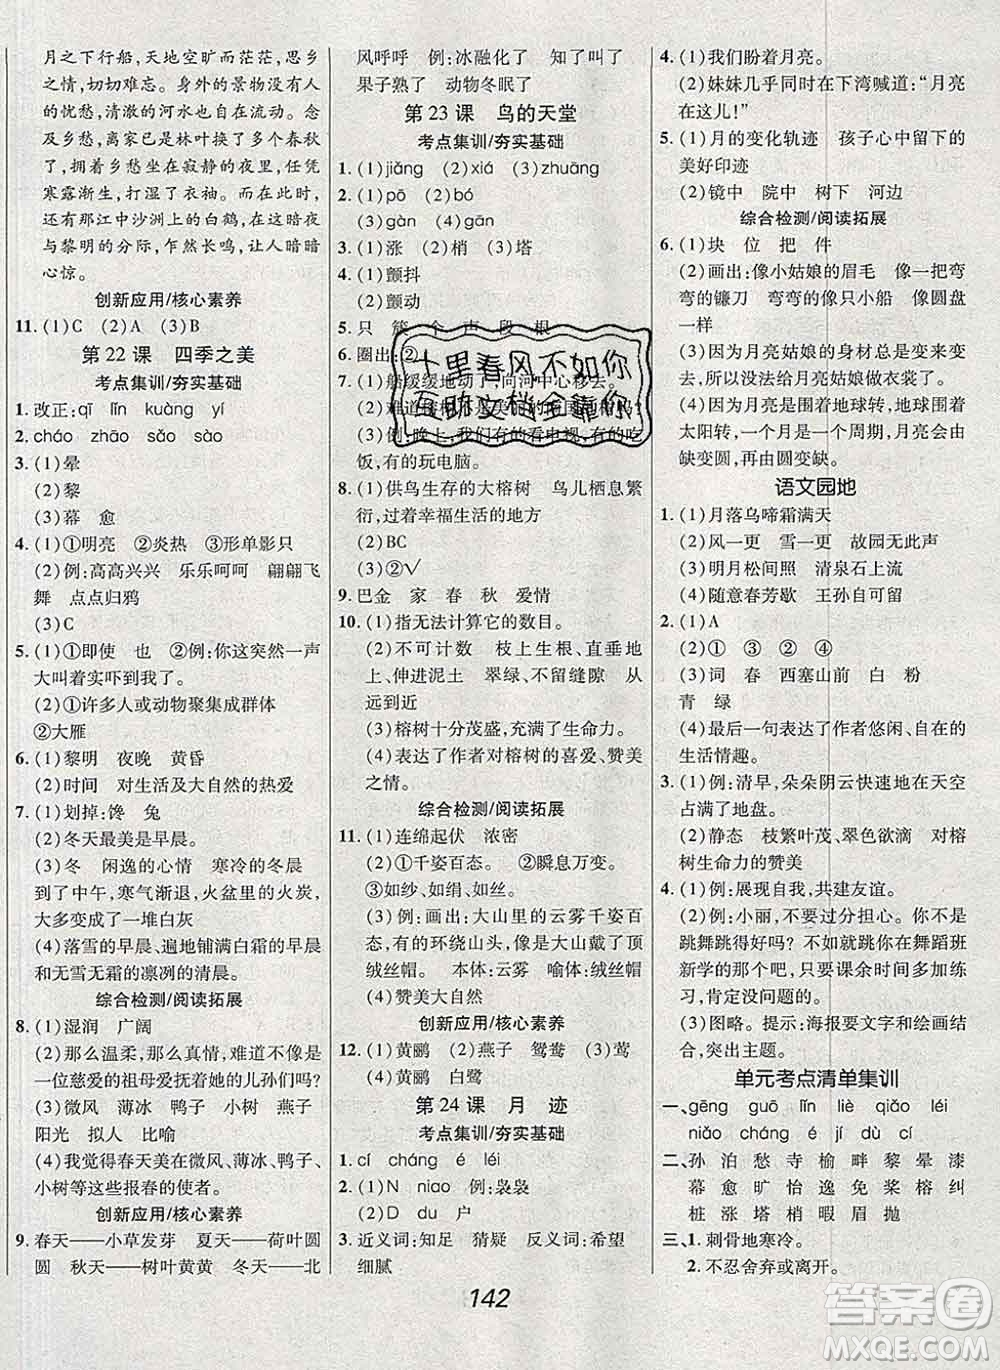 月之下行船,天地空旷而茫茫,思乡
之情,切切难忘。身外的景物没有人
的忧愁,清澈的河水也自在流动。念
及乡愁,离家已是林叶换了多个春秋
了,拥着乡愁坐在寂静的夜里,任凭
寒露渐生,打湿了衣袖。而这个时候,
还有那江中沙洲上的白鹤,在这暗夜
与黎明的分际,乍然长鸣,让人暗暗
心惊。
创新应用/核心素养
11. (1)C (2)A (3)B
第 22 课 四季之美
考点集训/夯实基础
1. 改正:qī lǐn kuàng yí
2. cháo zhāo sǎo sào
3. (1)晕
(2)黎
(3)幕 愈
4. (1)①明亮 ②炎热 ③形单影只
(2)例:高高兴兴 乐乐呵呵 翩翩飞
舞 点点归鸦
(3)C
5. (1)①即使 也 ②例:你这突然一声
大叫着实吓到我了。
(2)①许多人或动物聚集成群体
②大雁
6. (1)黎明 夜晚 黄昏
(2)时间 对生活及大自然的热爱
7. (1)划掉:馋 兔
(2)冬天最美是早晨。
(3)冬 闲逸的心情 寒冷的冬晨
到了中午,寒气渐退,火盆里的火炭,
大多变成了一堆白灰
(4)落雪的早晨、遍地铺满白霜的早晨
和无雪无霜的凛冽的清晨。
综合检测/阅读拓展
8. (1)湿润 广阔
(2)那么温柔,那么真情,难道不像是
一位慈爱的祖母爱抚着她的儿孙们吗?
(3)微风 薄冰 鸭子 小树 燕子
阳光 拟人 比喻
(4)我觉得春天是美在微风、薄冰、鸭子、
小树等这些报春的使者。
创新应用/核心素养
9. 春天——小草发芽 夏天——荷叶圆
圆 秋天——树叶黄黄 冬天——北
风呼呼 例:冰融化了 知了叫了
果子熟了 动物冬眠了
第 23 课 鸟的天堂
考点集训/夯实基础
1. (1)jiǎng (2)xiá (3)zhuāng
2. (1)pō (2)bó
(3)gàn (4)gān
3. (1)涨 (2)梢 (3)塔
4. (1)颤抖
(2)颤动
5. 只 簇 个 声 段 根
6. 圈出:②
7. (1)船缓缓地动了,向河中心移去。
(3)例:晚上,我们有的看电视,有的吃
饭,有的玩电脑。
8. (1)供鸟生存的大榕树 鸟儿栖息繁
衍,过着幸福生活的地方
(2)BC
(3)②√
9. 巴金 家 春 秋 爱情
10. (1)指无法计算它的数目。
(2)不可计数 枝上生根、直垂地
上、伸进泥土 翠绿、不留缝隙 从
远到近
(3)榕树十分茂盛,充满了生命力。
(4)表达了作者对榕树的喜爱、赞美
之情。
综合检测/阅读拓展
11. (1)连绵起伏 浓密
(2)①千姿百态。 ②瞬息万变。
③如纱、如绢、如丝。
(3)例:画面:大山里的云雾千姿百
态,有的环绕山头,像给大山戴了顶
绒丝帽。 本体:云雾 喻体:绒丝帽
(4)赞美大自然
创新应用/核心素养
12. (1)黄鹂 (2)燕子 鸳鸯 (3)莺
(4)黄鹂 白鹭
第 24 课 月 迹
考点集训/夯实基础
1. cí cháng é léi
2. (1)N niao 例:袅袅
(2)D du 户
3. 近义词:知足 猜疑 反义词:希望
细腻
4. (1)我们盼着月亮。
(2)妹妹几乎同时在下湾喊道:“月亮
在这儿!”
5. (1)月的变化轨迹 孩子心中留下的
美好印迹
(2)镜中 院中 树下 河边
综合检测/阅读拓展
6. (1)块 位 把 件
(2)画出:像小姑娘的眉毛 像一把弯
弯的镰刀 弯弯的像小船 像圆盘
一样
(3)因为月亮姑娘的身材总是变化,
所以没法给月亮姑娘做衣裳了。
(4)月亮是围着地球转,地球围着
太阳转,一个月是一个周期,月亮会由
缺变圆,由圆变缺。
语文园地
1. (1)月落乌啼霜满天
(2)风一更 雪一更 故园无此声
(3)明月松间照 清泉石上流
(4)随意春芳歇 王孙自可留
2. (1)A
(2)①②④
(3)词 春 西塞山前 白 粉
青 绿
(4)最后一句表达了作者悠闲、自在的
生活情趣。
3. (1)例:清早,朵朵阴云快速地在天空
占满了地盘。
(2)静态 枝繁叶茂、翠色欲滴 对榕
树生命力的赞美
4. (1)例:展现自我,共建友谊。
(2)例:小丽,不要过分担心。你不是
跳舞跳得好吗?你可以跳你在舞蹈班
新学的那个吧,只要课余时间多加练
习,肯定没问题的。
(3)图略。提示:海报要文字和绘画结
合,突出主题。
单元考点清单集训
一、gēng guō lǐn liè qiǎo léi
niǎo cháng é jí dù cí
二、孙 泊 愁 寺 榆 畔 黎 晕 漆
幕 愈 旷 怡 逸 免 桨 榕 纠
桩 涨 塔 梢 暇 眉 抛
三、1. 刺骨地寒冷。
2. 不忍舍弃或离开。
142
十里春风不如你
互助文档全靠你
答案圈
MXQE.COM